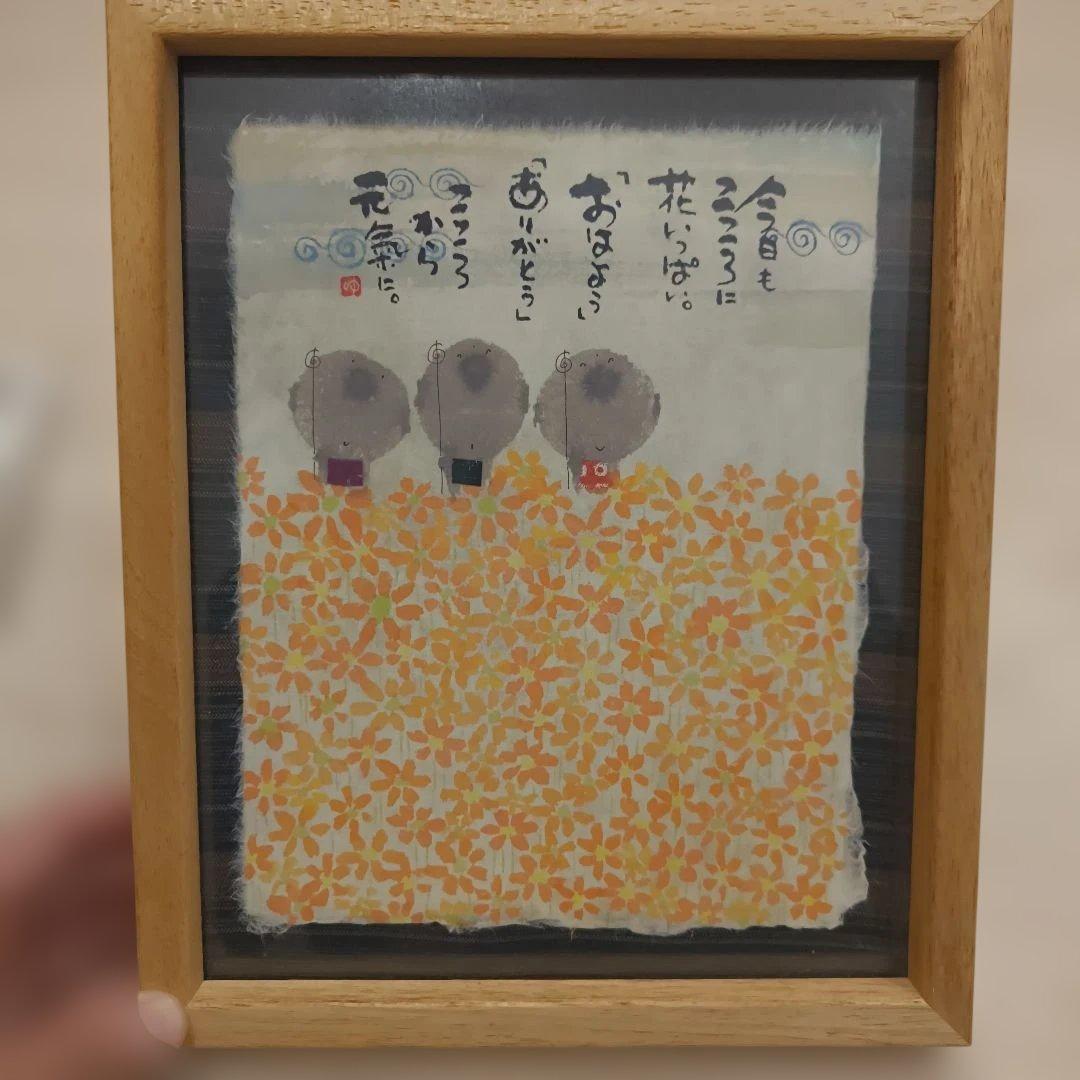 今日も
こころに
花いっぱい。
「おはよう」
「ありがとう」
こころ
から
元氣に。
ゆ